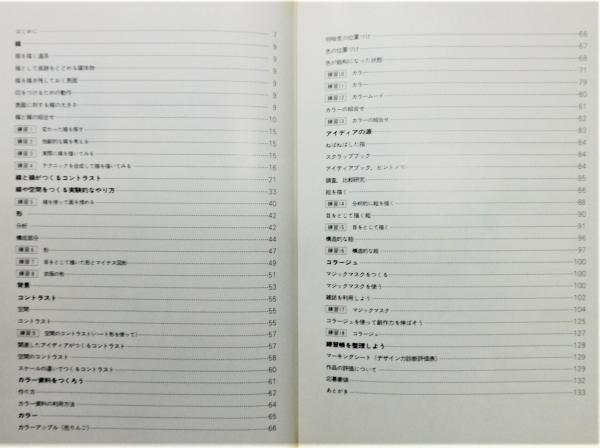 はじめに 7
線 9
線を描く道具 9
線として痕跡をとどめる媒体物 9
線を描き残しておく表面 9
印をつけるための動作 9
表面に対する線の大きさ 9
線と線の組合せ 10
練習1 変わった線を探す 15
練習2 独創的な線を考える 15
練習3 実際に線を描いてみる 15
練習4 テクニックを合成して線を描いてみる 16
線と線がつくるコントラスト 21
線や空間をつくる実験的なやり方 33
練習5 線を使って面を埋める 40
形 42
分析 42
構成部分 44
練習6 形 47
練習7 目をとじて描いた形とマイナス図形 49
練習8 衣服の形 51
背景 53
コントラスト 55
空間 55
コントラスト 55
練習9 空間のコントラスト(シート形を使って) 57
関連したアイディアがつくるコントラスト 57
空間のコントラスト 58
スケールの違いでつくるコントラスト 60
カラー資料をつくろう 61
作り方 62
カラー資料の利用方法 64
カラー 65
カラーアップル(色りんご) 66
明暗度の位置づけ 66
色の位置づけ 67
色が飽和になった状態 68
練習10 カラー 71
練習11 カラー 79
練習12 カラームード 80
カラーの組合せ 61
練習13 カラーの組合せ 62
アイディアの源 83
ねばねばした指 84
スクラップブック 84
アイディアブック、ヒントノート 84
調査、比較研究 85
絵を描く 86
練習14 分析的に絵を描く 88
目をとじて描く絵 90
練習15 目をとじて描く 91
構造的な絵 96
練習16 構造的な絵 97
コラージュ 100
マジックマスクをつくる 100
マジックマスクを使う 100
雑誌を利用しよう 102
練習17 マジックマスク 104
コラージュを使って創作力を伸ばそう 125
練習18 コラージュ 127
練習帳を整理しよう 128
マーキングシート(デザイン力診断評価表) 129
作品の評価について 129
応募要領 132
あとがき 133